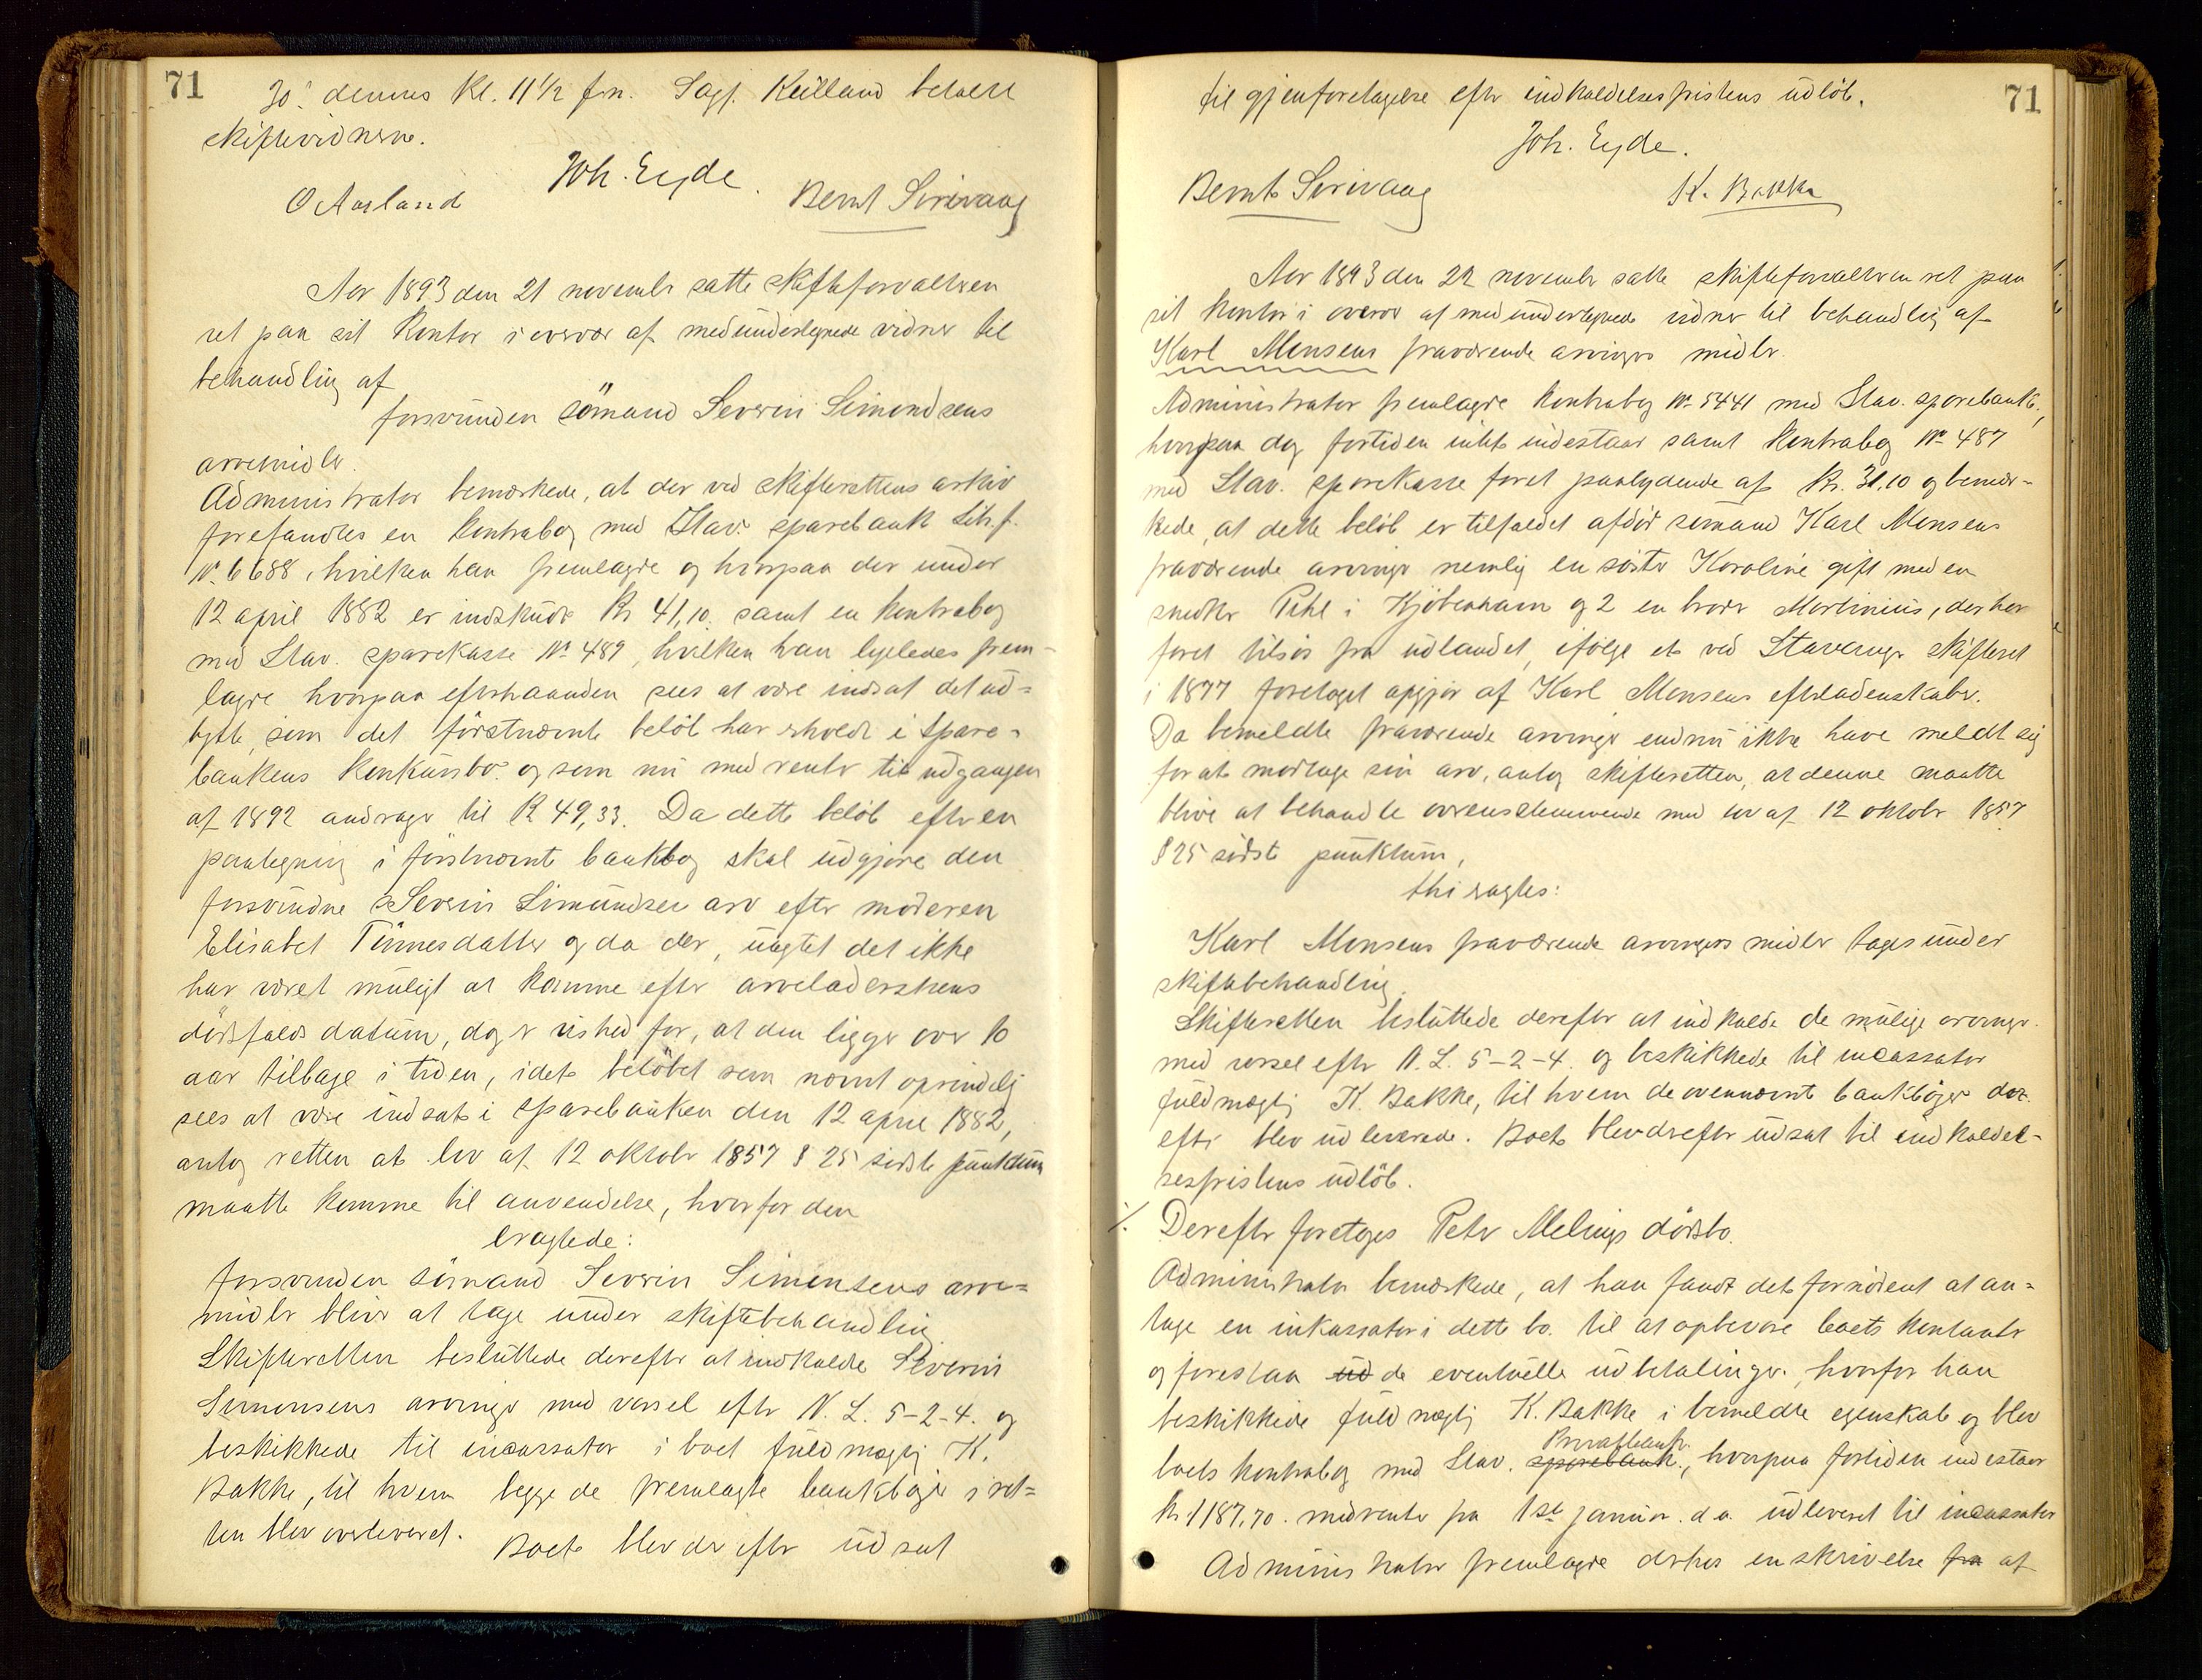 71
30. dennes Kl. 11 1/2 fm. Sagf. Kielland betalte
skiftevidnerne.
Joh. Eyde.
O Aarland
Bernt Sirevaag
Aar 1893 den 21 novembr satte skifteforvalteren
ret paa sit kontor i overvær af medundertegnede vidner til
behandling af
forsvunden sömand Severin Simondsens
arvemidler.
Administrator bemærkede, at der ved skifterettens arkiv
forefandtes en kontrabog med Stav. sparebank Litr. f.
No. 6688, hvilken han fremlagde og hvorpaa der under
12 april 1882 er indskudt Kr 41,10. samt en kontrabog
med Stav. sparekasse No 489, hvilken han ligeledes frem-
lagde hvorpaa efterhaanden sees at være indsat det ud=
bytte, som det förstnævnte belöb har erholdt i Spare=
bankens konkursbo. og som nu med renter til udgangen
af 1892 andrager til K 49,33. Da dette belöb efter en
paategning i förstnævnte bankbog skal udgjöre den
forsvundne Severin Simundsen arv efter moderen
Elisabet Tönnesdatter og da der, uagtet det ikke
har været muligt at komme efter arveladerskens
dödsfalds datum, dog er vished for, at den ligger over 10
aar tilbage i tiden, idet belöbet som nævnt oprindelig
sees at være indsat i sparebanken den 12 april 1882,
antog retten at lov af 12 oktobr 1857 § 25 sidste punktum
maatte komme til anvendelse, hvorfor den
eragtede:
forsvunden sömand Severin Simensens arve=
midler bliver at tage under skiftebehandling.
Skifteretten besluttede derefter at indkalde Severin
Simonsens arvinger med varsel efter N. L. 5-2-4. og
beskikkede til incassator i boet fuldmægtig K.
Bakke, til hvem begge de fremlagte bankböger i ret=
ten blev overleveret. Boet blev derefter udsat
71
til gjenforetagelse efter indkaldelsesfristens udlöb.
Joh. Eyde.
Bernt Sirevaag
K. Bakke
Aar 1893 den 22 novembr satte skifteforvalteren ret paa
sit kontor i overvær af medundertegnede vidner til behandling af
Karl Monsens fraværende arvingers midler.
Administrator fremlagde kontrabog No 5441 med Stav. sparebank.,
hvorpaa dog fortiden intet indestaar samt kontrabog No 487
med Stav. sparekasse foret paalydende af Kr. 31.10 og bemær-
kede, at dette belöb er tilfaldet afdöd sömand Karl Monsens
fraværende arvinger nemlig en söster Karoline gift med en
snedker Pihl i Kjöbenhavn og 2 en broder Martinius, der har
faret tilsös fra udlandet, ifölge et ved Stavanger skifteret
i 1877 foretaget opgjör af Karl Monsens efterladenskaber.
Da bemeldte fraværende arvinger endnu ikke have meldt sig
for at modtage sin arv, antog skifteretten, at denne maatte
blive at behandle overensstemmende med lov af 12 oktobr 1857
§ 25 sidste punktum,
thi eragtes:
Karl Monsens fraværende arvingers midler tages under
skiftebehandling.
Skifteretten besluttede derefter at indkalde de mulige arvinger.
med varsel efter N. L. 5-2-4. og beskikkede til incassator
fuldmægtig K. Bakke, til hvem de ovennævnte bankböger der-
efter blev udleverede. Boet blev derefter udsat til indkaldel-
sesfristens udlöb.
./. Derefter foretoges Peter Melings dödsbo.
Administrator bemærkede, at han fandt det fornödent at an=
tage en inkassator i dette bo. til at opbevare boets kontanter
og forestaa ud de eventuelle udbetalinger, hvorfor han
beskikkede fuldmægtig K. Bakke i bemeldte egenskab og blev
Privatbank.
boets kontrabog med Stav. sparebank., hvorpaa fortiden indestaar
Kr 1187,70. med renter fra 1ste januar. d. a. udleveret til incassator
Administrator fremlagde derhos en skrivelse fra af